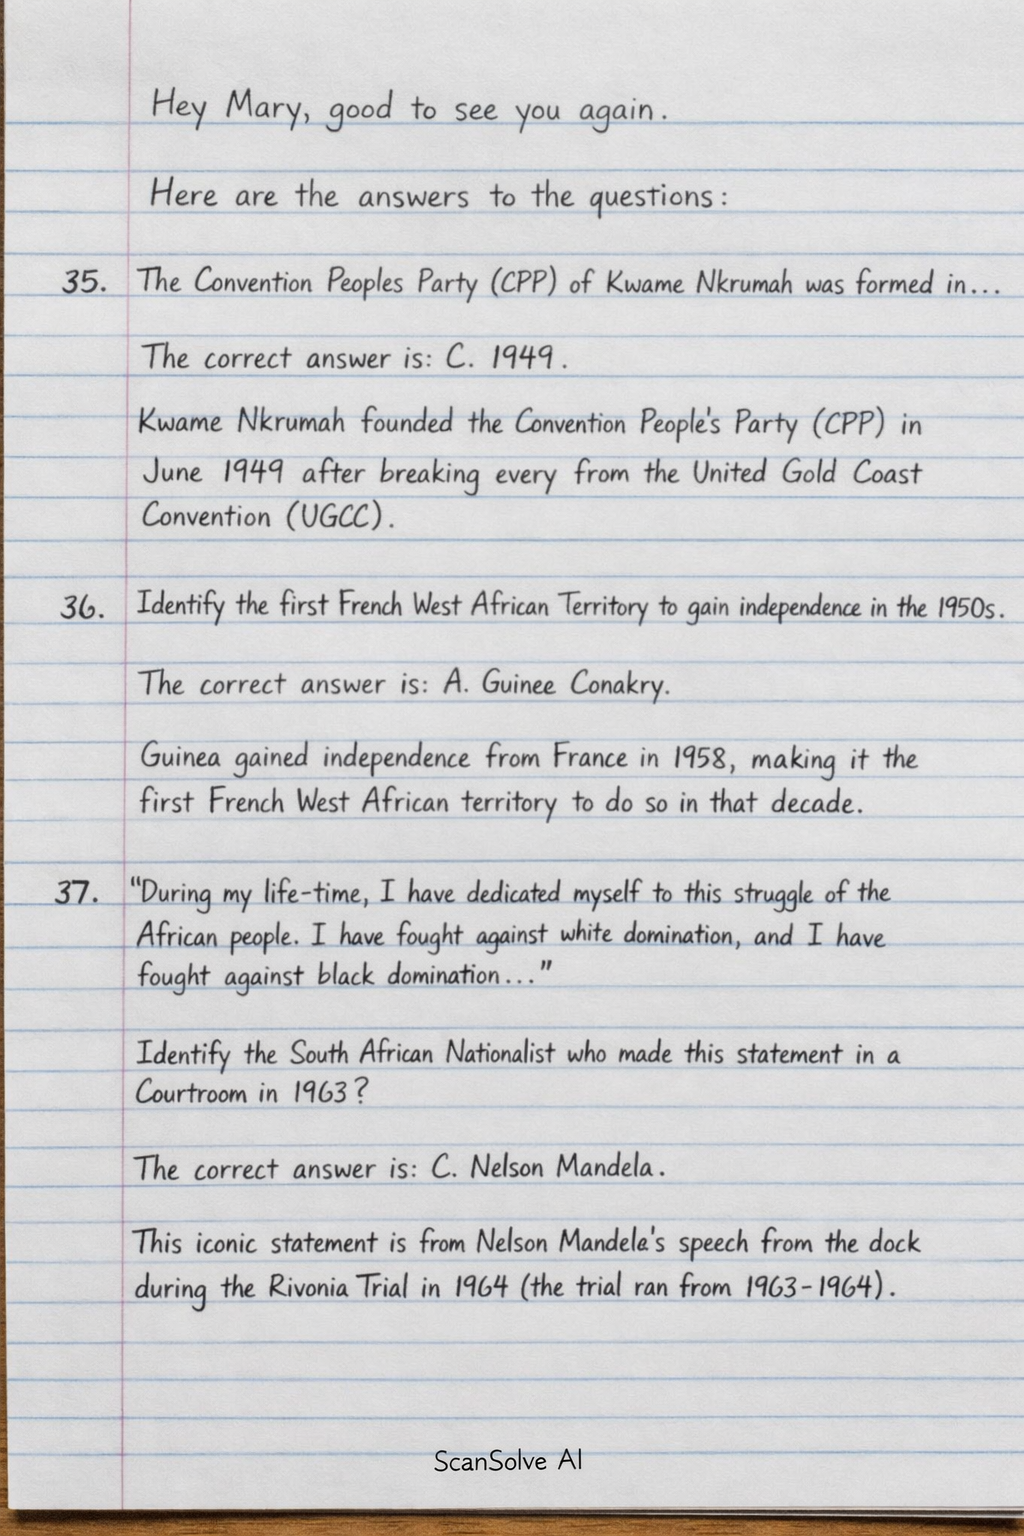 Hey Mary, good to see you again.
Here are the answers to the questions:
35. The Convention Peoples Party (CPP) of Kwame Nkrumah was formed in...
The correct answer is: C. 1949.
Kwame Nkrumah founded the Convention People's Party (CPP) in
June 1949 after breaking every from the United Gold Coast
Convention (UGCC).
36. Identify the first French West African Territory to gain independence in the 1950s.
The correct answer is: A. Guinee Conakry.
Guinea gained independence from France in 1958, making it the
first French West African territory to do so in that decade.
37. "During my life-time, I have dedicated myself to this struggle of the
African people. I have fought against white domination, and I have
fought against black domination..."
Identify the South African Nationalist who made this statement in a
Courtroom in 1963?
The correct answer is: C. Nelson Mandela.
This iconic statement is from Nelson Mandela's speech from the dock
during the Rivonia Trial in 1964 (the trial ran from 1963-1964).
ScanSolve AI